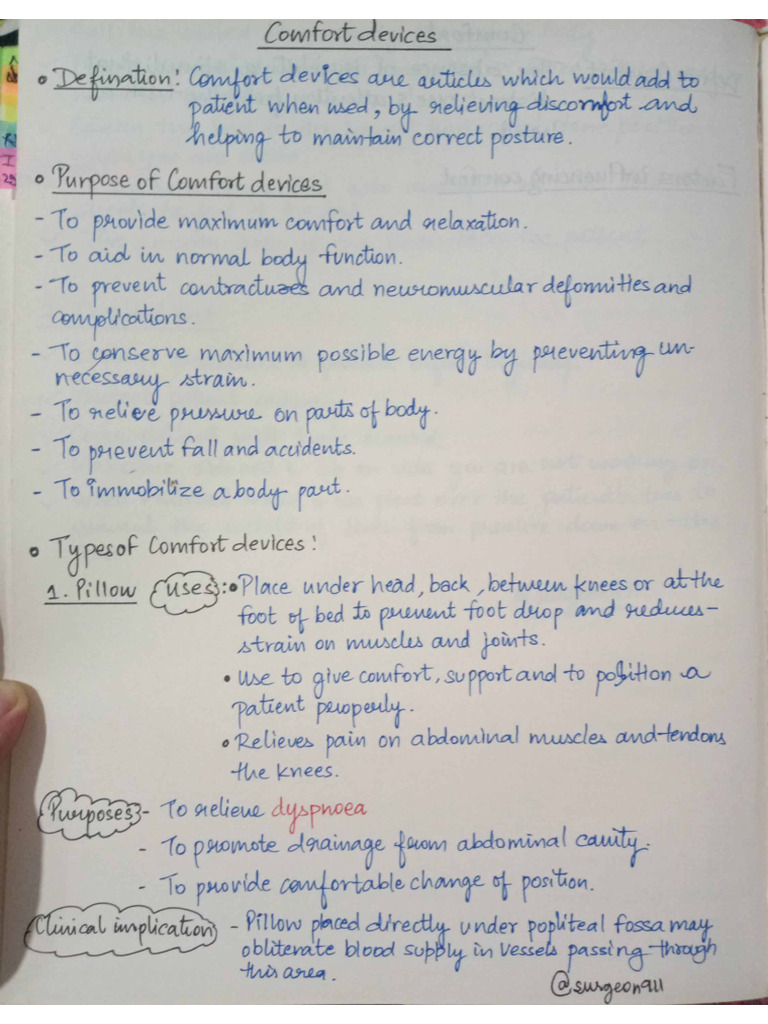 Comfort devices
• Defination: Comfort devices are articles which would add to
patient when used, by relieving discomfort and
helping to maintain correct posture.
• Purpose of Comfort devices
- To provide maximum comfort and relaxation.
- To aid in normal body function.
- To prevent contractures and neuromuscular deformities and
complications.
- To conserve maximum possible energy by preventing un-
necessary strain.
- To relieve pressure on parts of body.
- To prevent fall and accidents.
- To immobilize a body part.
• Types of Comfort devices:
1. Pillow Uses: • Place under head, back, between knees or at the
foot of bed to prevent foot drop and reduces
strain on muscles and joints.
• Use to give comfort, support and to position a
patient properly.
• Relieves pain on abdominal muscles and tendons
the knees.
Purposes - To relieve dyspnoea
- To promote drainage from abdominal cavity.
- To provide comfortable change of position.
Clinical implication - Pillow placed directly under popliteal fossa may
obliterate blood supply in vessels passing through
this area.
@surgeon911